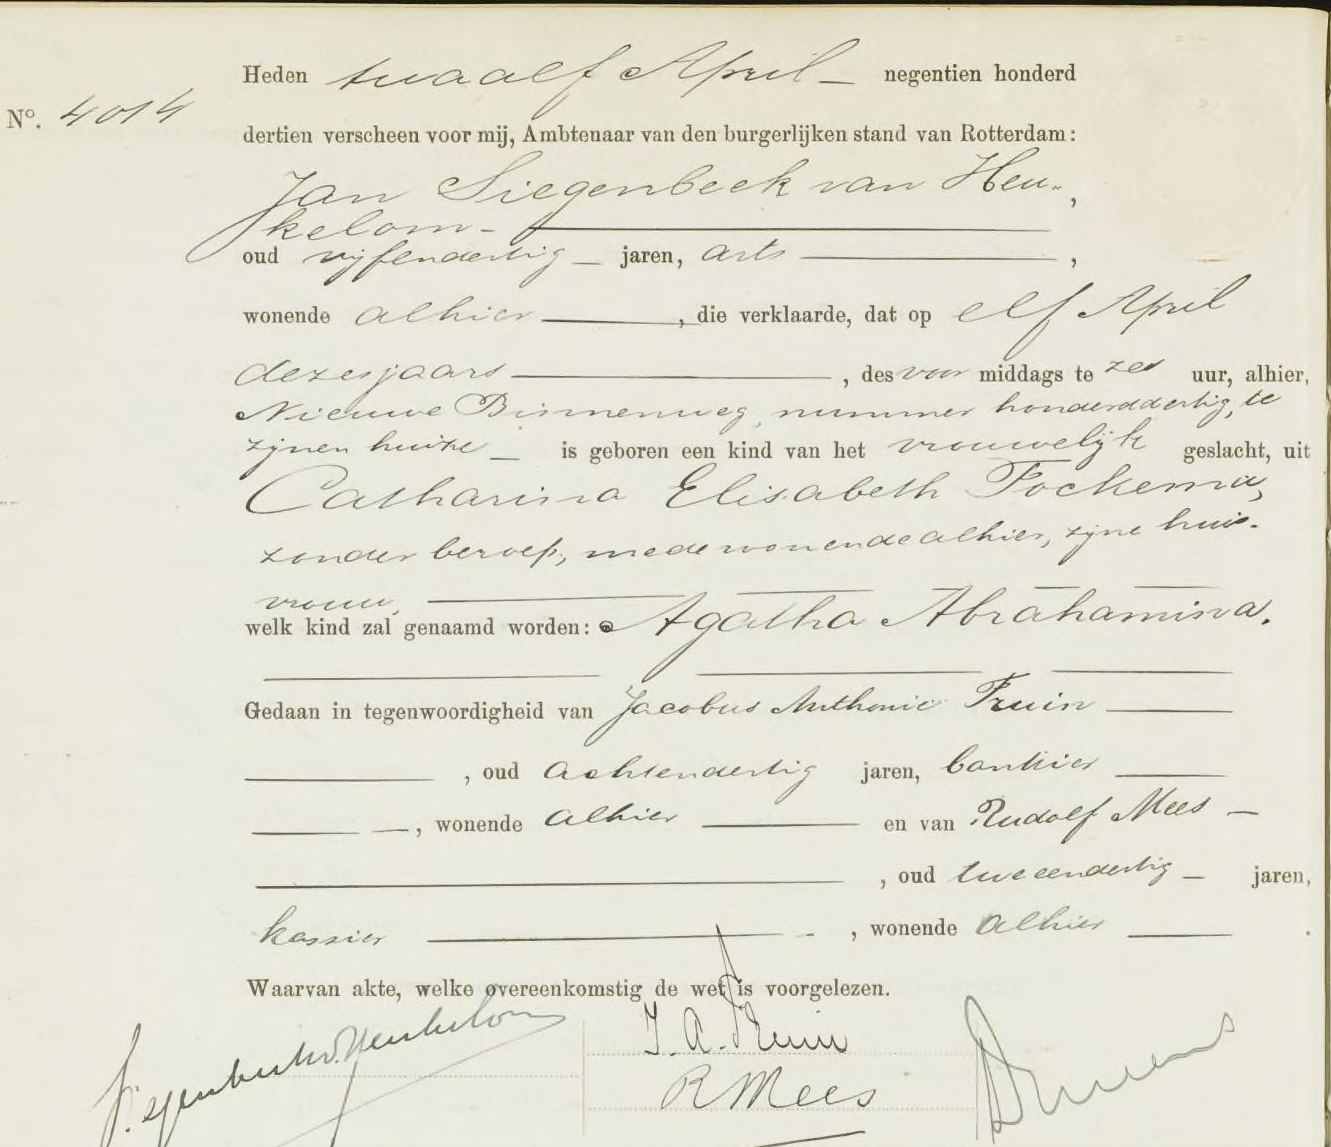 Heden twaalf April negentien honderd
No. 4014
dertien verscheen voor mij, Ambtenaar van den burgerlijken stand van Rotterdam:
Jan Siegenbeek van Heu-,
kelom
oud vijfendertig jaren, arts,
wonende alhier, die verklaarde, dat op elf April
dezes jaars, des voor middags te zes uur, alhier,
Nieuwe Binnenweg, nummer honderddertig, te
zijnen huize is geboren een kind van het vrouwelijk geslacht, uit
Catharina Elisabeth Fockema,
zonder beroep, mede wonende alhier, zijne huis-
vrouw,
welk kind zal genaamd worden: Agatha Abrahamina.
Gedaan in tegenwoordigheid van Jacobus Anthonie Fruin
, oud achtendertig jaren, bankier
, wonende alhier en van Rudolf Mees
, oud tweeendertig jaren,
kassier, wonende alhier.
Waarvan akte, welke overeenkomstig de wet is voorgelezen.
Siegenbeek v. Heukelom
J. A. Fruin
R Mees